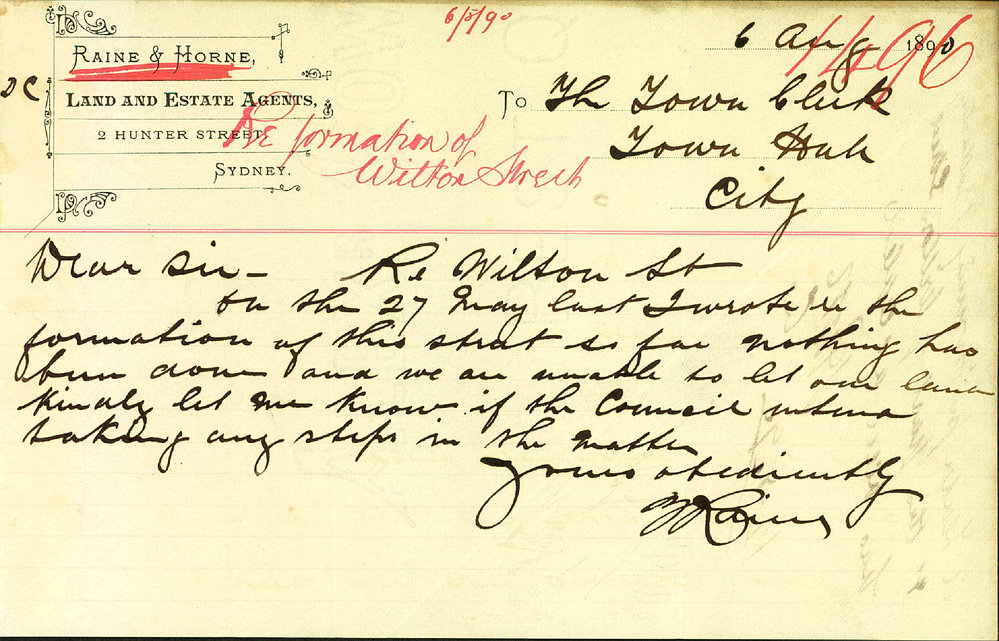 6/8/90
RAINE & HORNE,
LAND AND ESTATE AGENTS,
2 HUNTER STREET,
SYDNEY.
DC
Re formation of
Wilton Street
6 Aug 1890
To The Town Clerk
Town Hall
City
Dear Sir - Re Wilton St
On the 27 May last I wrote re the
formation of this street so far nothing has
been done and we are unable to let our land
Kindly let me know if the Council intend
taking any steps in the matter
Yours obediently
Raine